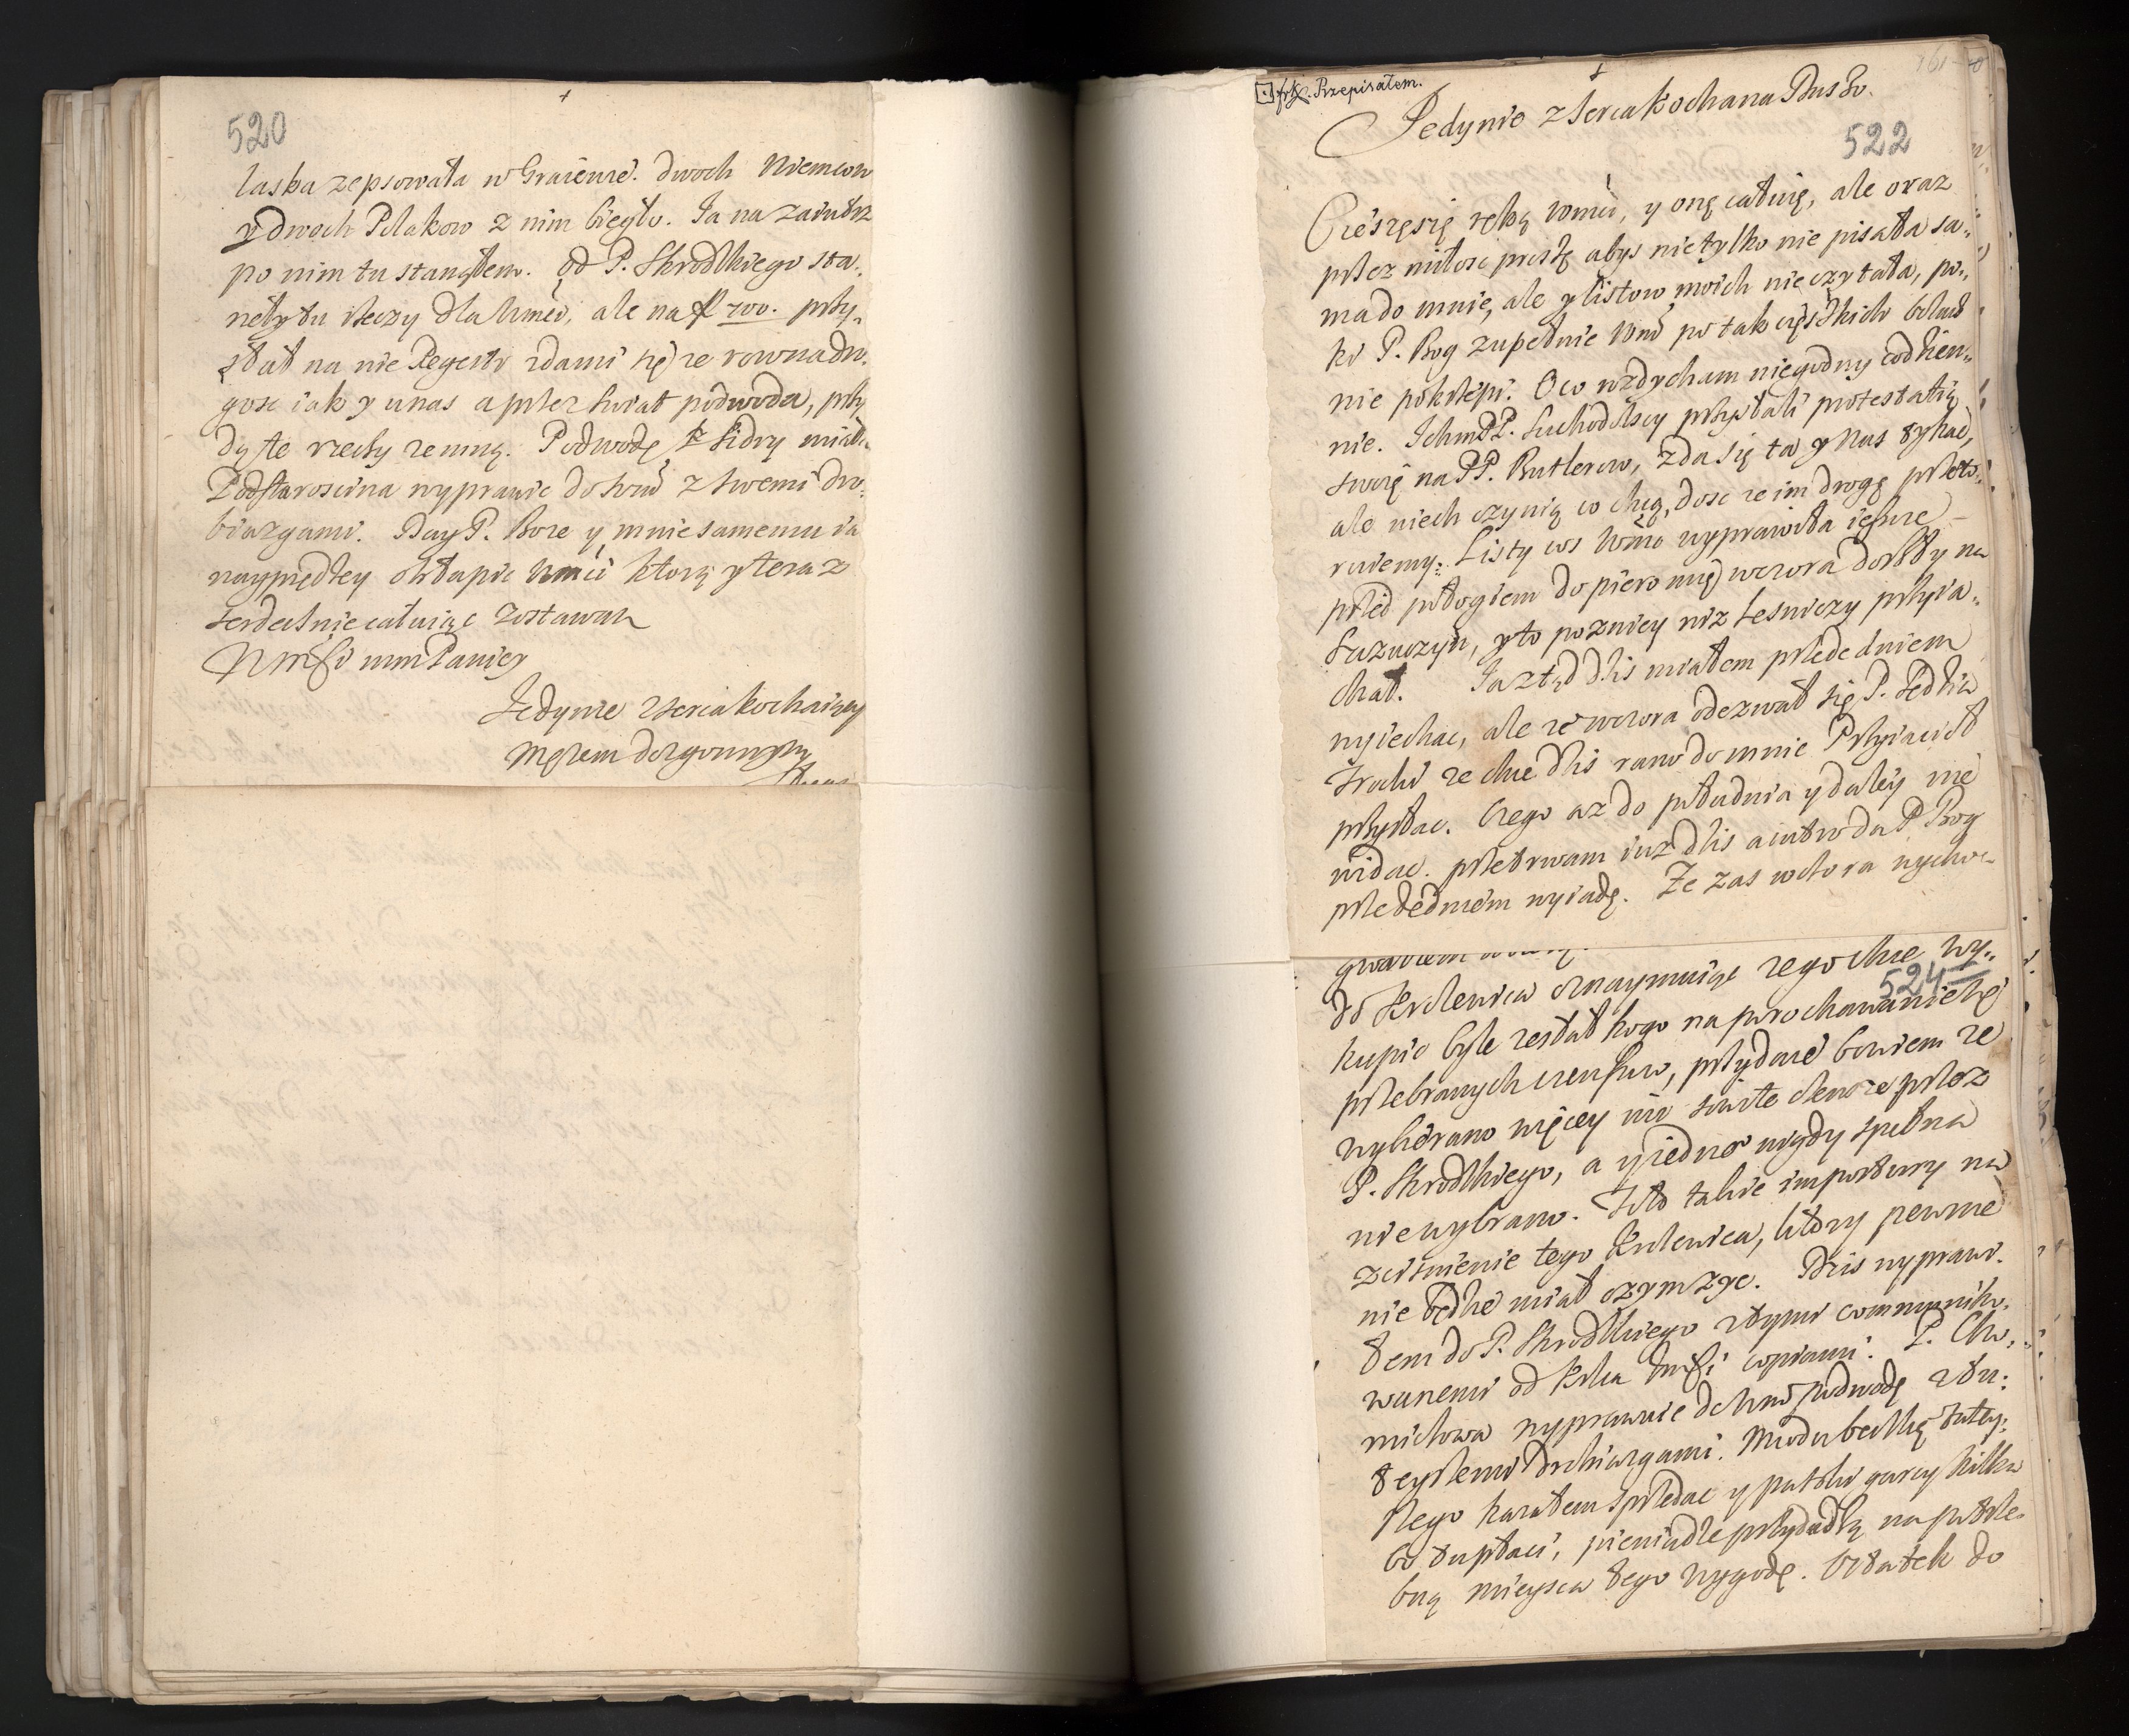 520
laska zepsowała w Graiewie. dwoch Niemcow
y dwoch Polakow z nim biegło. Ia na zaiutrz
po nim tu stanąłem. Od P. Skrodzkiego sta-
nęły tu rzeczy dla Wmci, ale na fl 700. przy-
słał na nie Regestr zdami się ze rowna dro-
gosc iak y u nas a przez swiat podwoda, przy
dą te rzeczy zemną. Podwodę z Sidry miała
Podstaroscina wyprawic do Wmci z swemi dro-
biazgami. Day P. Boze y mnie samemu ia
nayprędzey obłapic Wmci ktorą y teraz
serdecznie całuiąc zostawam
Wmsci mm Paniey
Iedynie zserca kochaiący
Męzem dozgonnym
frk. Przepisałem.
Jedynie z serca kochana Duszo.
522
Cieszę się ręką Wmci, y onę całuię, ale oraz
przez miłosc proszę abys nietylko nie pisała sa-
ma do mnie, ale y listow moich nie czytała, po-
ki P. Bog zupełnie Wmci po tak cięszkich bolach
nie pokrzepi. O co wzdycham niegodny codzien-
nie. Ichm PP. Suchodolscy przysłali protestatią
swoię na PP. Butlerow, zda się ta y Nas tykać,
ale niech czynią co chcą, dosc ze im drogę przeto-
ruiemy. Listy cos Wmc wyprawiła ieszcze
przed połogiem dopiero mię wczora doszły na
Suzuczyn, y to pozniey niz Lesniczy przyia-
chał. Ia ztąd dzis miałem przede dniem
wyiechac, ale ze wczora odezwał się P. Sędzia
Trocki ze chce dzis rano do mnie Przyiacioł
przysłac. Czego az do południa y daley nie
widac. przetrwam iuz dzis a iutro da P. Bog
przededniem wyiadę. Ze zas wczora wycho-
524
do Krolewica oznaymuiąc ze go chce wy-
kupic byle zesłał kogo na porachowanie się
przebranych czynszow, przydaie bowiem ze
wybierano więcey nie tak te czynsze przez
P. Skrodzkiego, a y iedno nigdy spełna
nie wybrano. Isto takie importuny na
zcisnienie tego Krolewica, ktory pewnie
nie będzie miał czym zyc. Dzis wyprawi-
łem do P. Skrodzkiego z tymi communiko-
wanemi od Krola Jmsci copiami. P. Cho-
mictowa wyprawuie do Wmci podwodę z tu-
teyszemi drobiazgami. Miodu beczkę tutey-
szego kazałem sprzedac y patoki garcy kilka
bo tu płaci, pieniądze przydadzą na potrze-
bną mieysca tego wygodę. Ostatek do